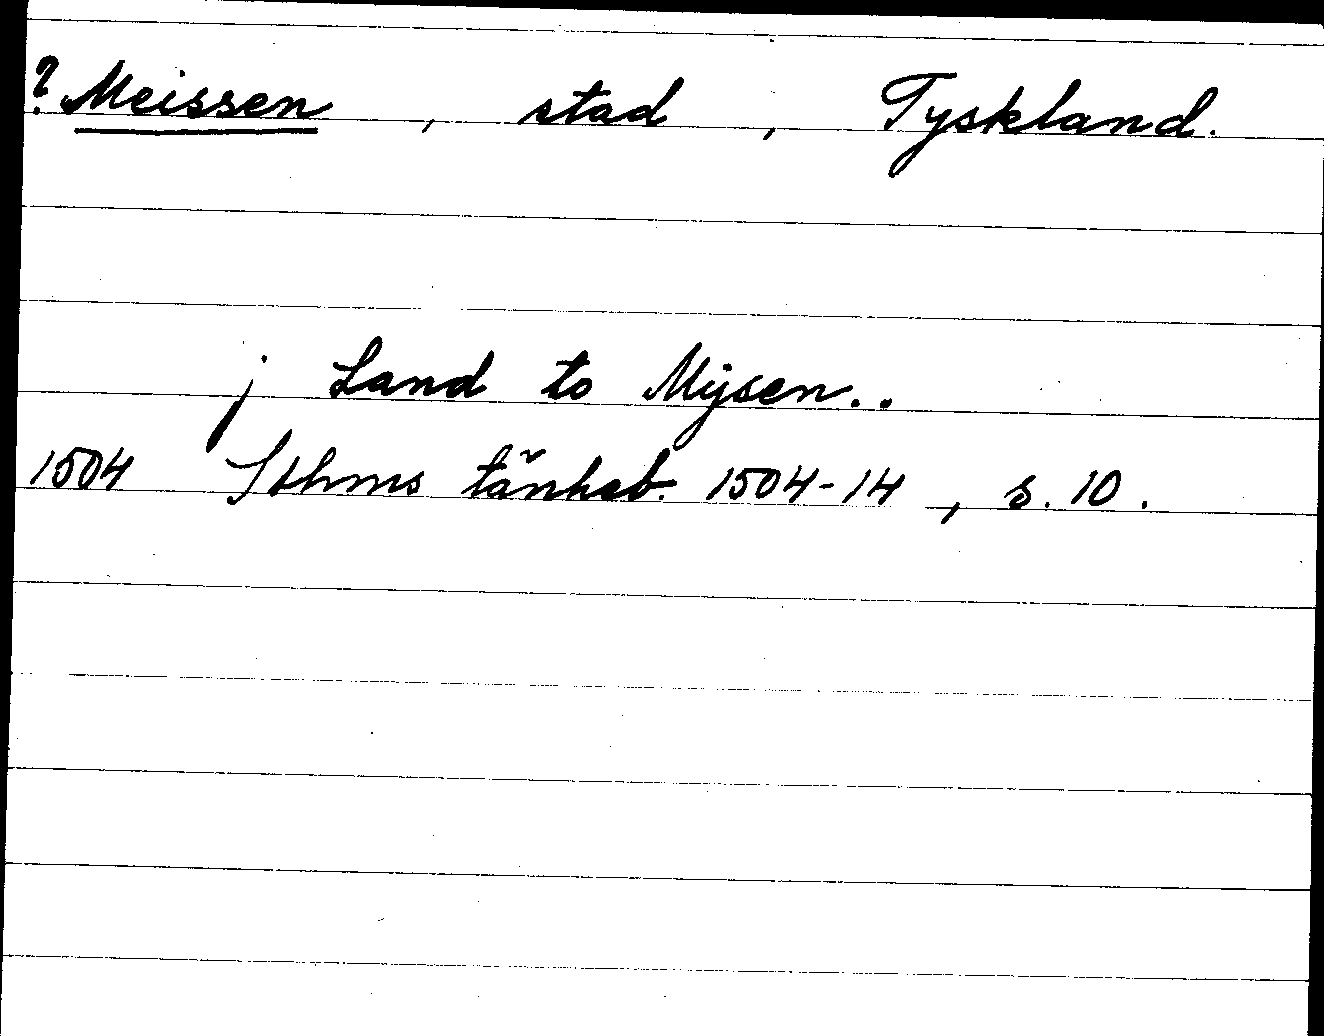 ? Meissen, stad, Tyskland.
j Land to Mÿsen..
1504 Sthms tänkeb. 1504-14, s. 10.